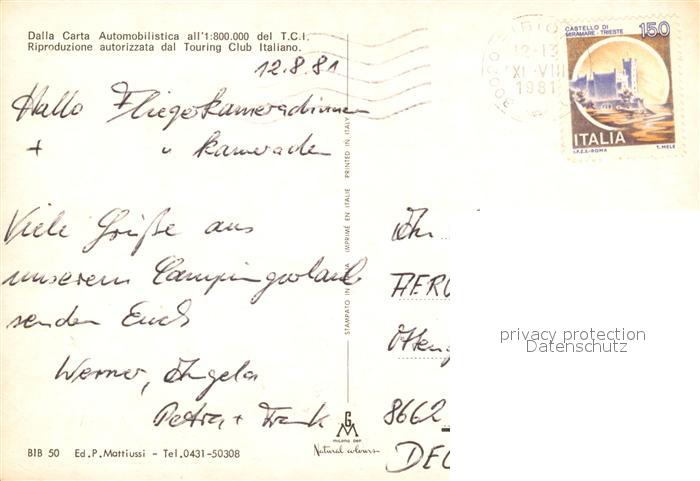 Dalla Carta Automobilistica all'1:800.000 del T.C.I.
Riproduzione autorizzata dal Touring Club Italiano.
12.8.81
Hallo Fliegerkameradinnen
+ " kameraden
Viele Grüße aus
unserem Campingurlaub
senden Euch
Werner, Angela
Petra + Frank
BIB 50 Ed. P. Mattiussi - Tel. 0431-50308
STAMPATO IN ITALIA IMPRIMÉ EN ITALIE PRINTED IN ITALY
GM
MILANO DEP
Natural colours
12-13
XI VIII
1981
CASTELLO DI
MIRAMARE - TRIESTE
150
ITALIA
I.P.Z.S.-ROMA T. MELE
An
AERO
8662
DEU
privacy protection
Datenschutz